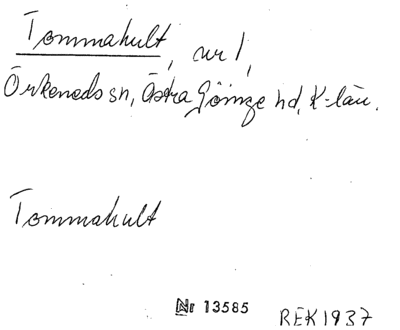 Tommahult, nr 1,
Örkeneds sn, Östra Göinge hd, K-län.
Tommahult
Nr 13585
REK 1937